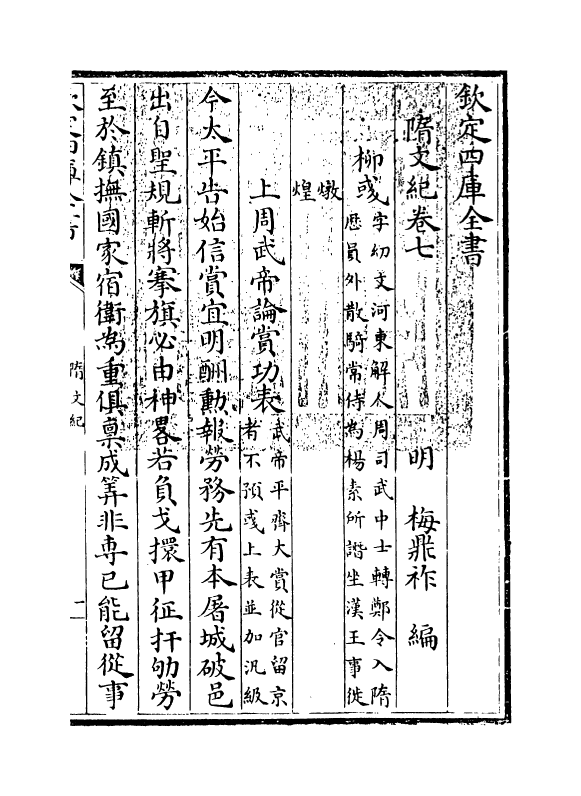 欽定四庫全書
隋文紀卷七
明 梅鼎祚 編
柳彧 字幼文河東解人周司武中士轉鄭令入隋
歴員外散騎常侍為楊素所譖坐漢王事徙
燉
煌
上周武帝論賞功表 武帝平齊大賞從官留京
者不預彧上表並加汎級
今太平告始信賞宜明酬勳報勞務先有本屠城破邑
出自聖規斬將搴旗必由神畧若負戈擐甲征扞劬勞
至於鎮撫國家宿衛為重俱禀成筭非専已能留從事
隋文紀